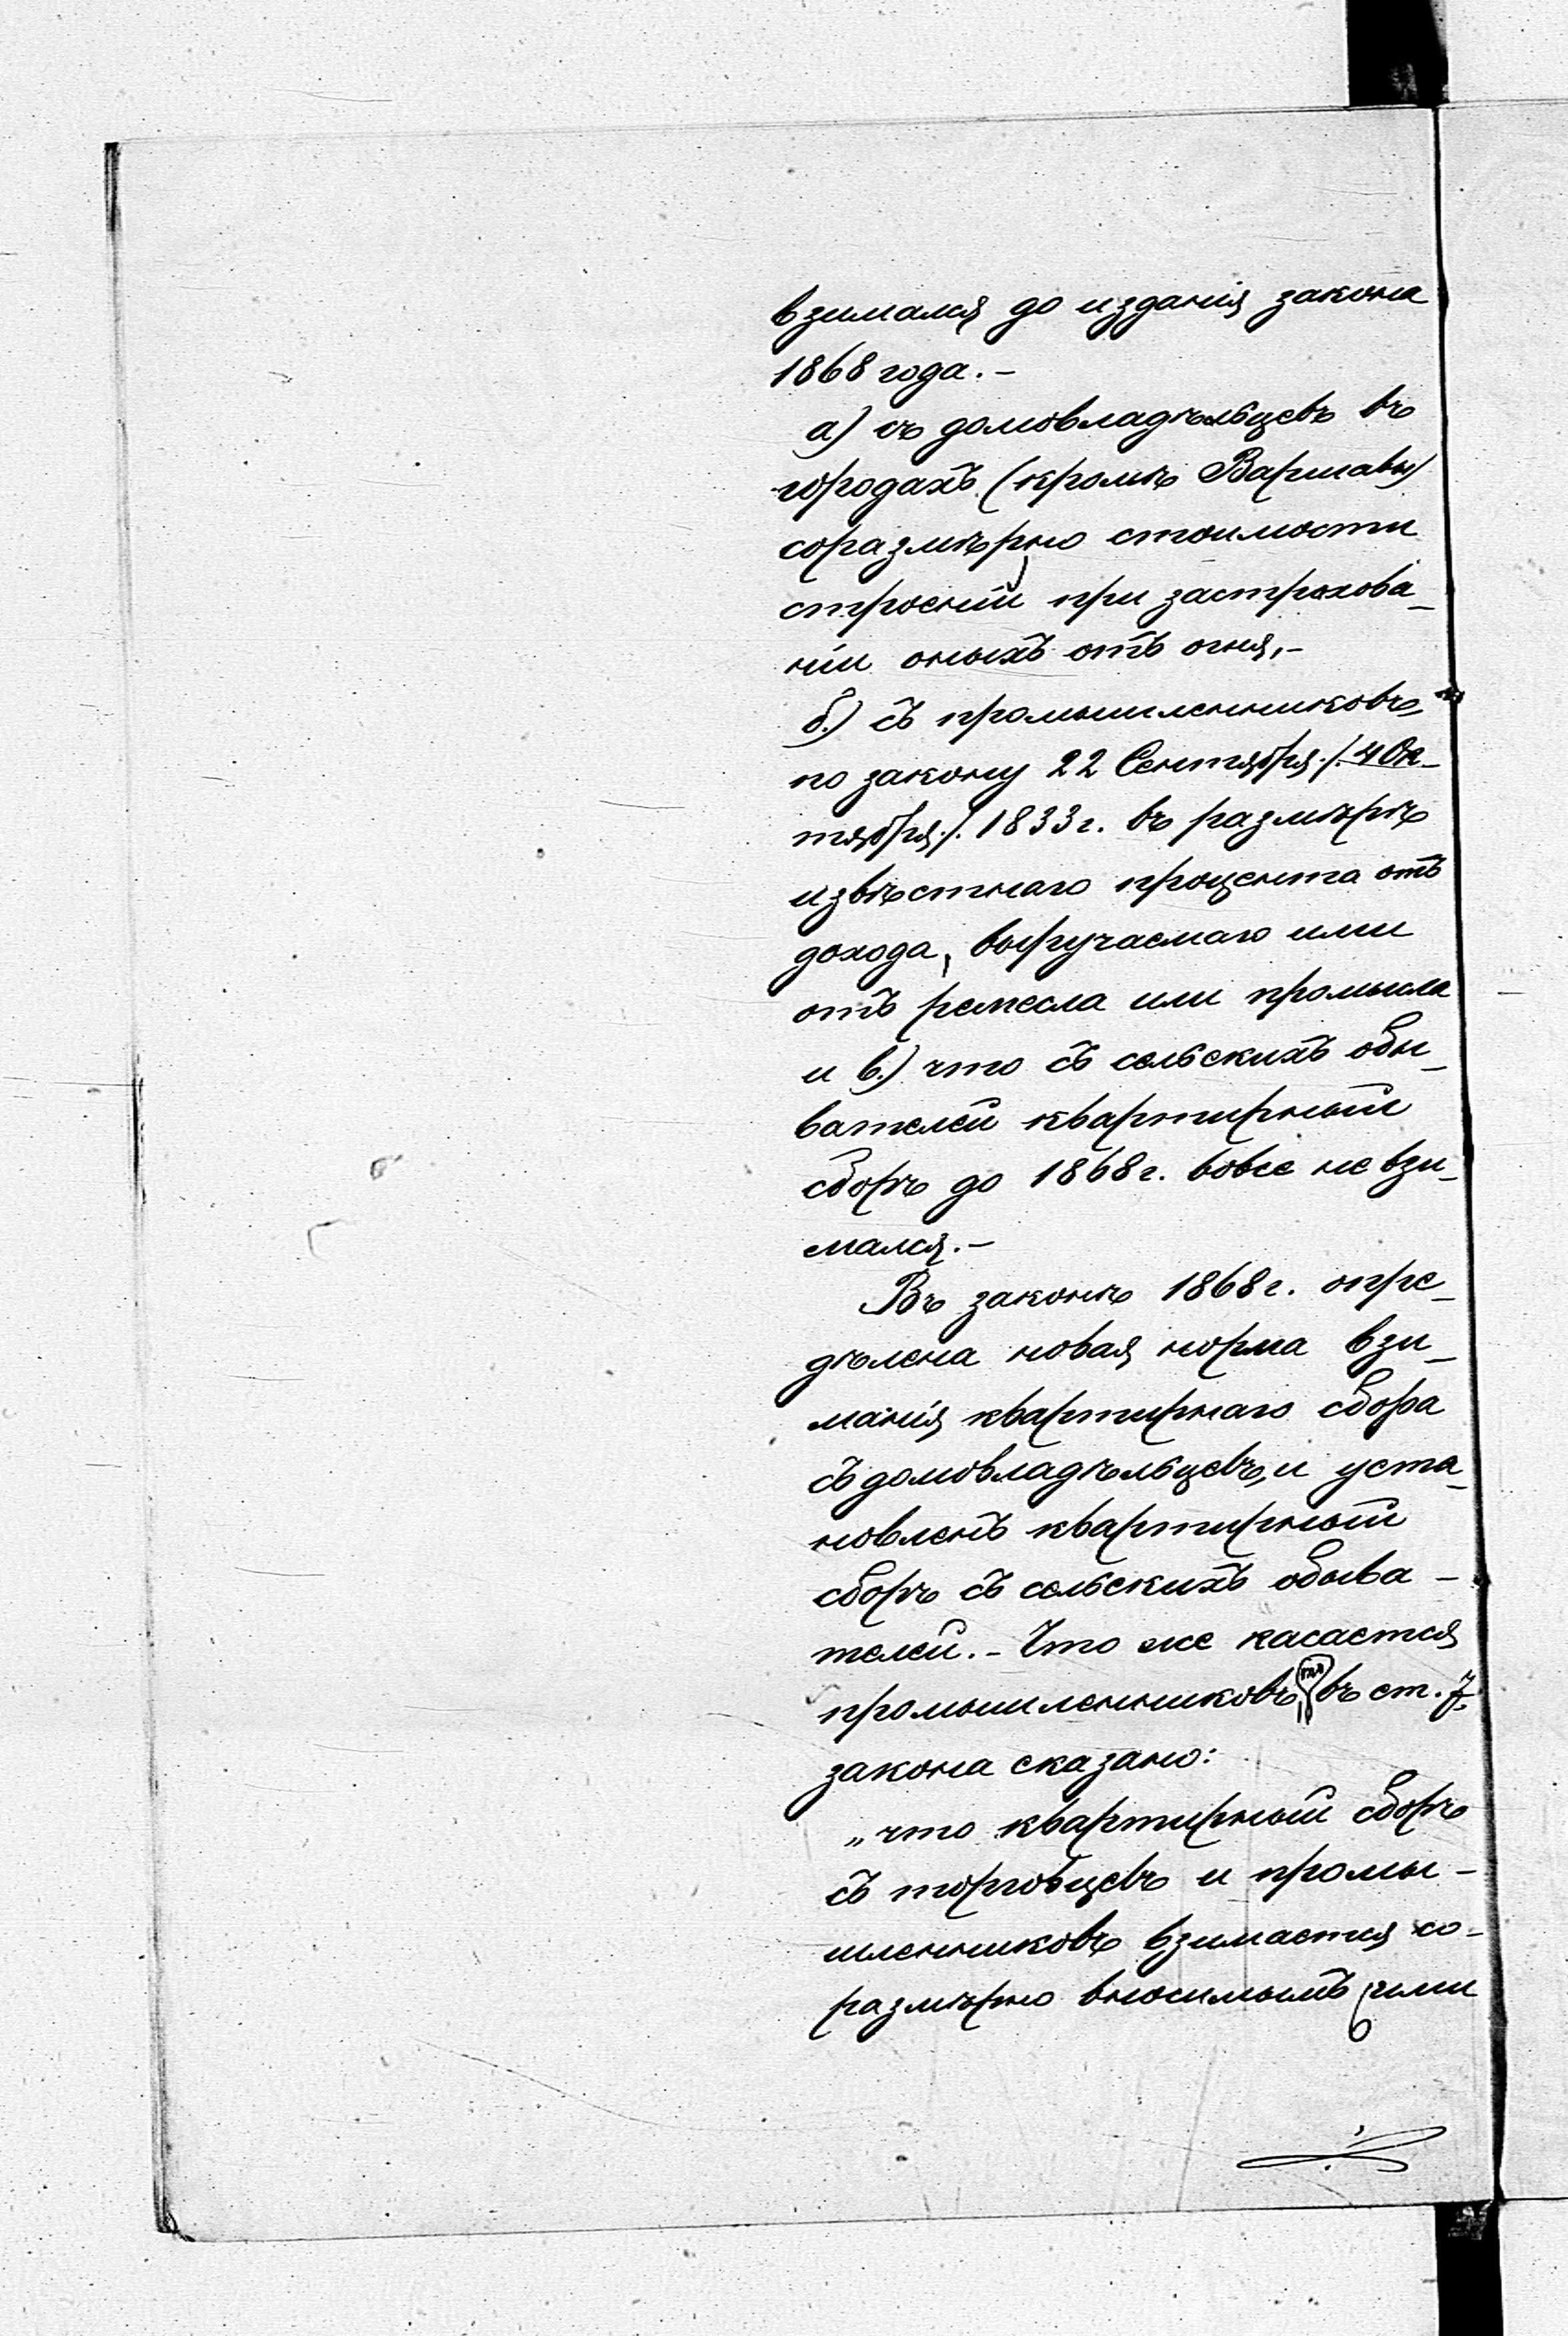 взимался до изданія закона
1868 года.-
а) съ домовладѣльцевъ въ
городахъ (кромѣ Варшавы)
соразмѣрно стоимости
строеній при застрахова-
ніи оныхъ отъ огня,-
б.) съ промышленниковъ,
по закону 22 Сентября ./. 4 Ок-
тября ./. 1833 г. въ размѣрѣ
извѣстнаго процента отъ
дохода, выручаемаго ими
отъ ремесла или промысла
и в.) что съ сельскихъ обы-
вателей квартирный
сборъ до 1868 г. вовсе не взи-
мался.-
Въ законѣ 1868 г. опре-
дѣлена новая норма взи-
манія квартирнаго сбора
съ домовладѣльцевъ, и уста-
новленъ квартирный
сборъ съ сельскихъ обыва-
телей.- Что же касается
промышленниковъ въ ст. 7.
закона сказано:
„что квартирный сборъ
съ торговцевъ и промы-
шленниковъ взимается со-
размѣрно вносимымъ ими